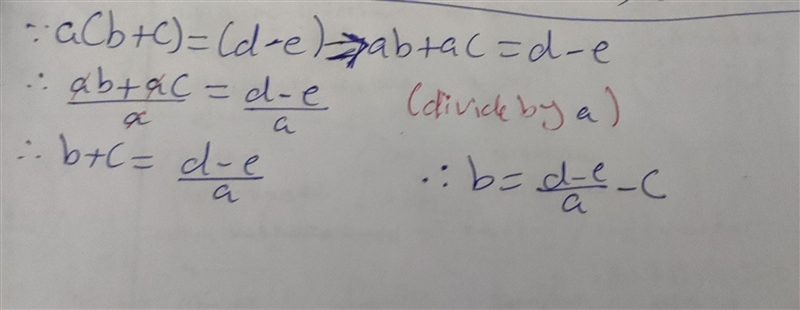 ∵ a(b+c)=(d-e) ⇒ ab+ac=d-e
∴ (ab+ac)/a = (d-e)/a (divide by a)
∴ b+c = (d-e)/a ∴ b = (d-e)/a - c